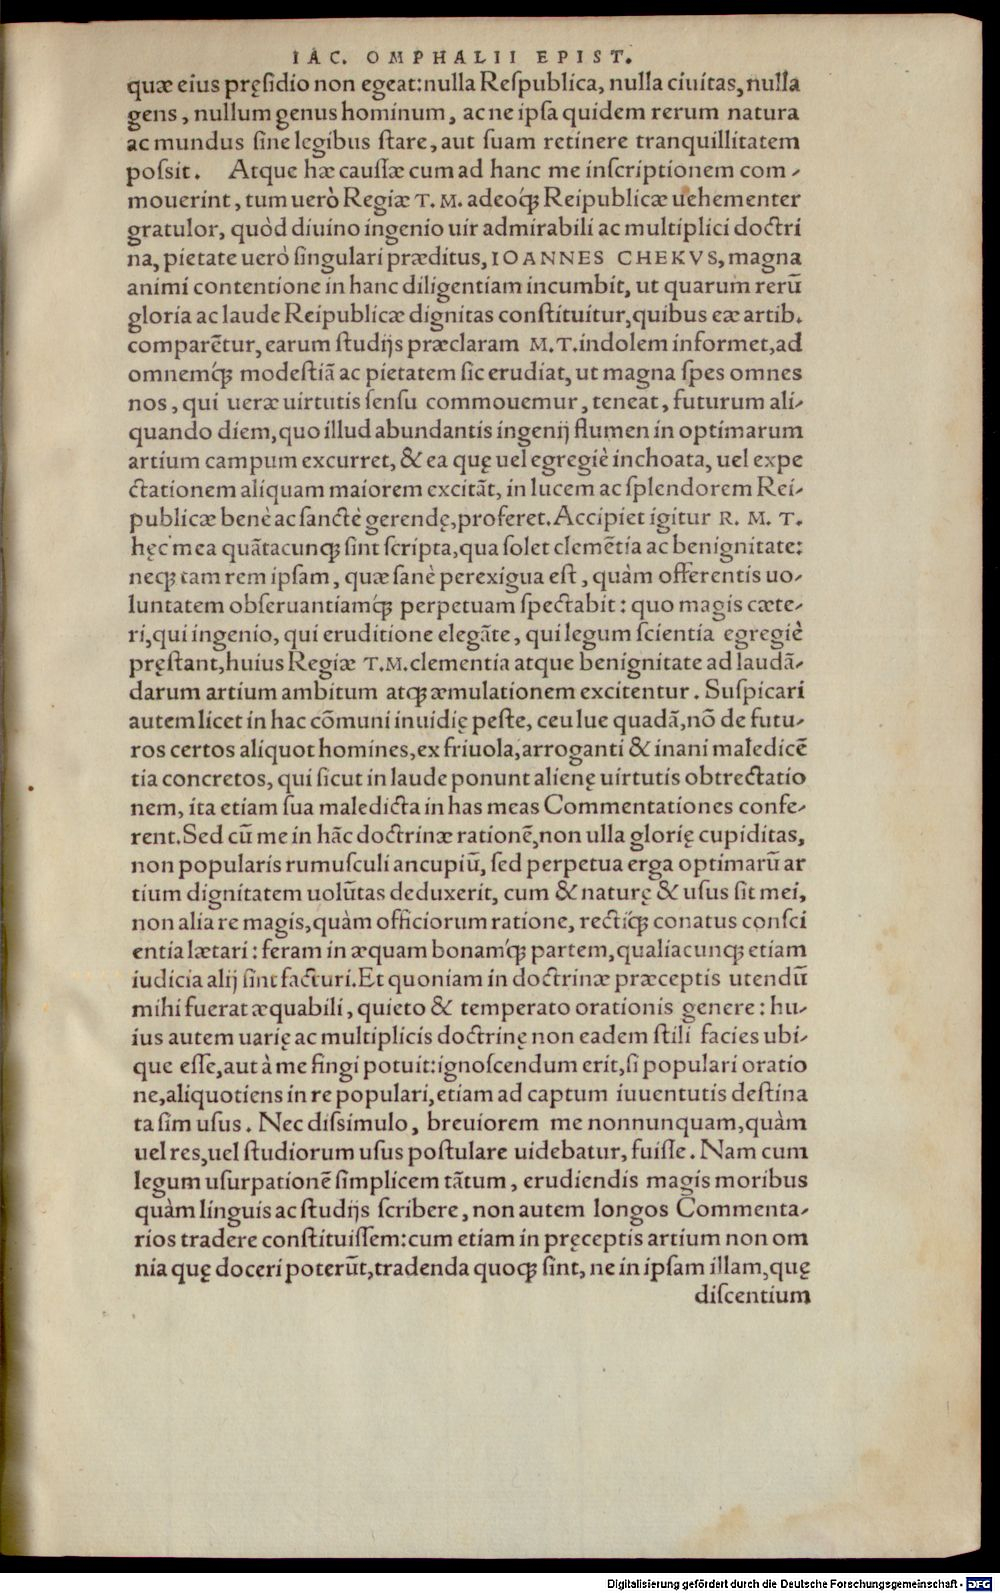 IAC. OMPHALII EPIST.
quæ eius pręsidio non egeat: nulla Respublica, nulla ciuitas, nulla
gens, nullum genus hominum, ac ne ipsa quidem rerum natura
ac mundus sine legibus stare, aut suam retinere tranquillitatem
possit. Atque hæ caussæ cum ad hanc me inscriptionem com-
mouerint, tum uerò Regiæ T. M. adeoq́ꝫ Reipublicæ uehementer
gratulor, quòd diuino ingenio uir admirabili ac multiplici doctri
na, pietate uerò singulari præditus, IOANNES CHEKVS, magna
animi contentione in hanc diligentiam incumbit, ut quarum rerū
gloria ac laude Reipublicæ dignitas constituitur, quibus eæ artib.
comparētur, earum studijs præclaram M. T. indolem informet, ad
omnemq́ꝫ modestiā ac pietatem sic erudiat, ut magna spes omnes
nos, qui ueræ uirtutis sensu commouemur, teneat, futurum ali-
quando diem, quo illud abundantis ingenij flumen in optimarum
artium campum excurret, & ea quę uel egregiè inchoata, uel expe
ctationem aliquam maiorem excitāt, in lucem ac splendorem Rei-
publicæ benè ac sanctè gerendę, proferet. Accipiet igitur R. M. T.
hęc mea quātacunqꝫ sint scripta, qua solet clemētia ac benignitate:
neqꝫ tam rem ipsam, quæ sanè perexigua est, quàm offerentis uo-
luntatem obseruantiamq́ꝫ perpetuam spectabit: quo magis cæte-
ri, qui ingenio, qui eruditione elegāte, qui legum scientia egregiè
pręstant, huius Regiæ T. M. clementia atque benignitate ad laudā-
darum artium ambitum atqꝫ æmulationem excitentur. Suspicari
autem licet in hac cōmuni inuidię peste, ceu lue quadā, nō de futu-
ros certos aliquot homines, ex friuola, arroganti & inani maledicē
tia concretos, qui sicut in laude ponunt alienę uirtutis obtrectatio
nem, ita etiam sua maledicta in has meas Commentationes confe-
rent. Sed cū me in hāc doctrinæ rationē, non ulla glorię cupiditas,
non popularis rumusculi ancupiū, sed perpetua erga optimarū ar
tium dignitatem uolūtas deduxerit, cum & naturę & usus sit mei,
non alia re magis, quàm officiorum ratione, rectiq́ꝫ conatus consci
entia lætari: feram in æquam bonamq́ꝫ partem, qualiacunqꝫ etiam
iudicia alij sint facturi. Et quoniam in doctrinæ præceptis utendū
mihi fuerat æquabili, quieto & temperato orationis genere: hu-
ius autem uarię ac multiplicis doctrinę non eadem stili facies ubi-
que esse, aut à me fingi potuit: ignoscendum erit, si populari oratio
ne, aliquotiens in re populari, etiam ad captum iuuentutis destina
ta sim usus. Nec dissimulo, breuiorem me nonnunquam, quàm
uel res, uel studiorum usus postulare uidebatur, fuisse. Nam cum
legum usurpationē simplicem tātum, erudiendis magis moribus
quàm linguis ac studijs scribere, non autem longos Commenta-
rios tradere constituissem: cum etiam in pręceptis artium non om
nia quę doceri poterūt, tradenda quoqꝫ sint, ne in ipsam illam, quę
discentium
Digitalisierung gefördert durch die Deutsche Forschungsgemeinschaft - DFG